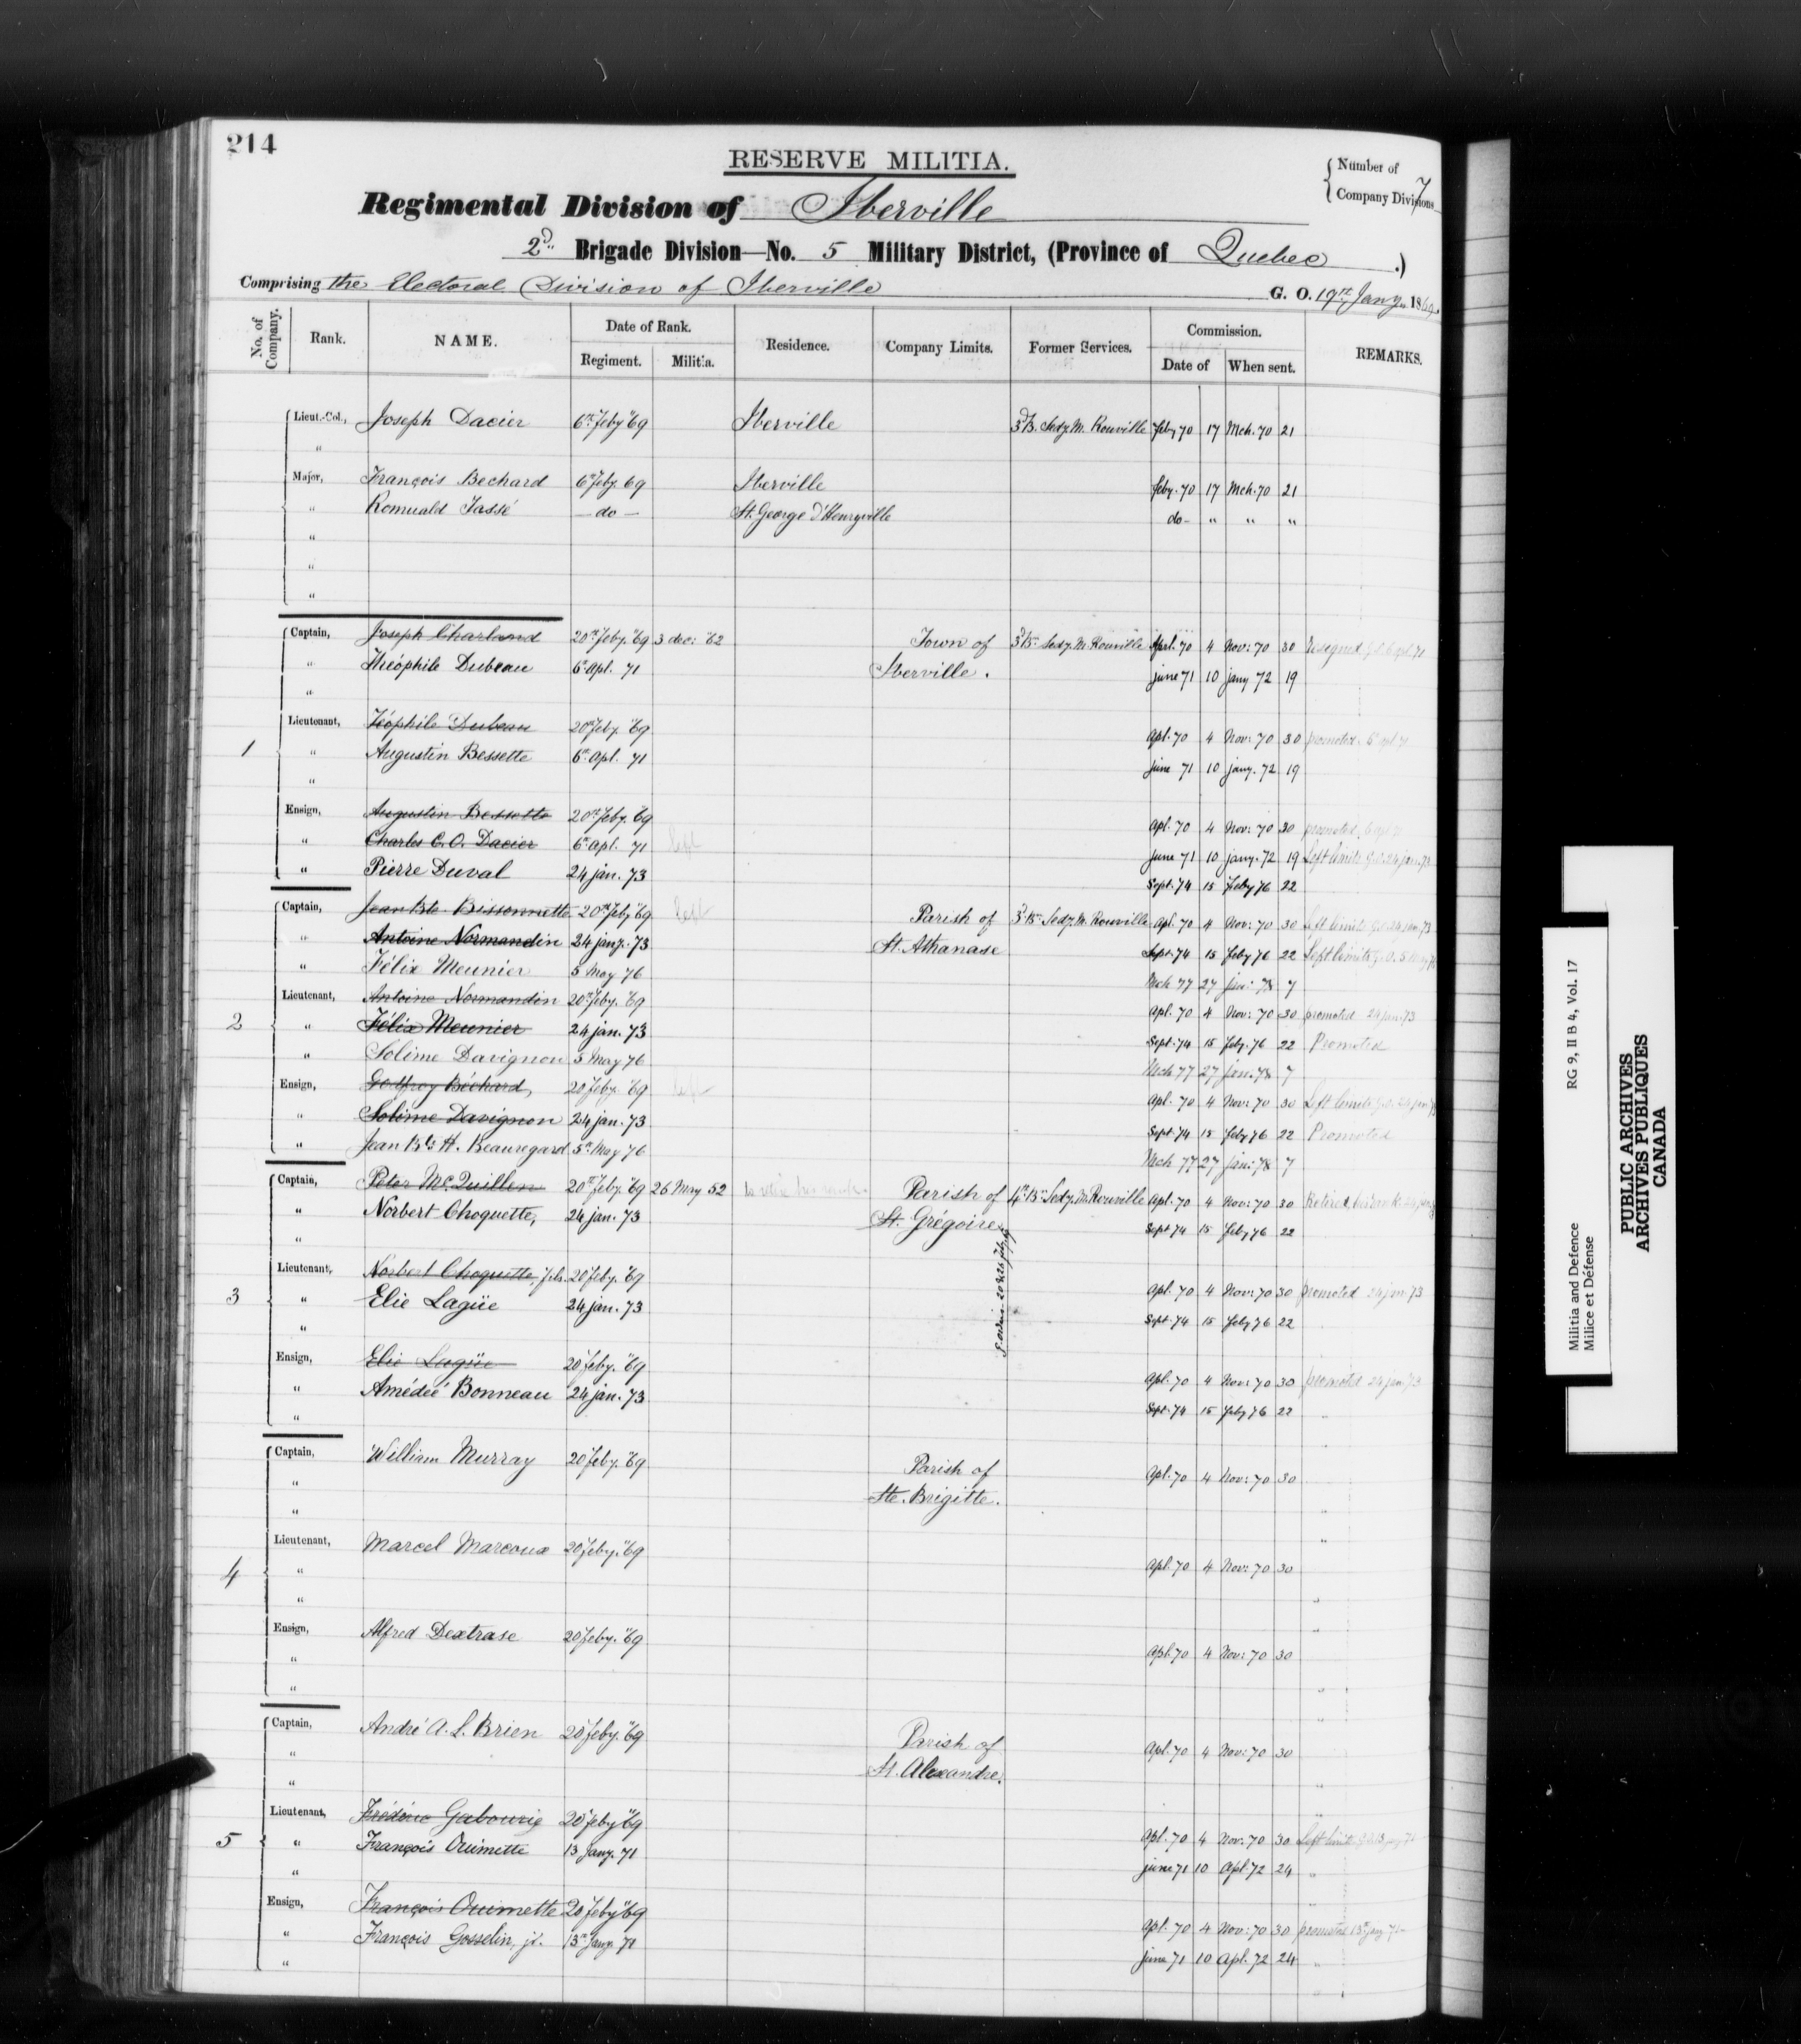 214
RESERVE MILITIA.
Number of Company Divisions 7
Regimental Division of Iberville
2d Brigade Division—No. 5 Military District, (Province of Quebec .)
Comprising the Electoral Division of Iberville G. O. 19th Jany. 1869.
No. of Company. Rank. NAME. Date of Rank. Residence. Company Limits. Former Services. Commission. REMARKS.
Regiment. Militia. Date of When sent.
Lieut.-Col., Joseph Dacier 6th Feby "69 Iberville 3d B. Sedy. M. Rouville Feby 70 17 Mch. 70 21
"
Major, François Bechard 6th Feby. 69 Iberville Feby. 70 17 Mch. 70 21
" Romuald Tassé — do — St. George d'Henryville do - " " "
"
"
"
1
Captain, Joseph Charland 20th Feby. "69 3 dec: "62 Town of 3d Bn. Sedy. M. Rouville Aprl. 70 4 Nov: 70 30 Resigned G.O. 6 apl 71
" Théophile Dubeau 6th Apl. 71 Iberville. june 71 10 jany 72 19
"
Lieutenant, Téophile Dubeau 20th Feby. "69 Apl. 70 4 Nov: 70 30 promoted. 6 apl 71
" Augustin Bessette 6th Apl. 71 june 71 10 jany. 72 19
"
Ensign, Augustin Bessette 20th Feby. "69 Apl. 70 4 Nov: 70 30 promoted, 6 apl 71
" Charles C. O. Dacier 6th Apl. 71 left june 71 10 jany. 72 19 Left limits G.O. 24 jan. 73
" Pierre Duval 24 jan. 73 Sept. 74 15 Feby 76 22
2
Captain, Jean Bte. Bissonnette 20th Feby "69 left Parish of 3d Bn. Sedy. M. Rouville Apl. 70 4 Nov: 70 30 Left limits G.O. 24 jan. 73
" Antoine Normandin 24 jany. 73 St. Athanase Sept. 74 15 Feby 76 22 Left limits G.O. 5 May 76
" Félix Meunier 5 May 76 Mch 77 27 jan: 78 7
Lieutenant, Antoine Normandin 20th Feby. "69 Apl. 70 4 Nov: 70 30 promoted 24 jan. 73
" Félix Meunier 24 jan. 73 Sept. 74 15 Feby. 76 22 Promoted
" Solime Davignon 5 May 76 Mch 77 27 jan: 78 7
Ensign, Godfroy Béchard, 20 Feby. "69 left Apl. 70 4 Nov: 70 30 Left limits G.O. 24 jan 73
" Solime Davignon 24 jan. 73 Sept. 74 15 Feby 76 22 Promoted
" Jean Bte H. Beauregard 5th May 76 Mch 77 27 jan: 78 7
3
Captain, Peter McQuillen 20th Feby. "69 26 May 52 to retire Parish of 4th Bn. Sedy. M. Rouville Apl. 70 4 Nov: 70 30 Retired
" Norbert Choquette, 24 jan. 73 St. Grégoire Sept 74 15 Feby 76 22
"
Lieutenant, Norbert Choquette, fils. 20 Feby. "69 Apl. 70 4 Nov: 70 30 promoted 24 jan. 73
" Elie Lagüe 24 jan. 73 Sept 74 15 Feby 76 22
"
Ensign, Elie Lagüe 20 Feby. "69 Apl. 70 4 Nov: 70 30 promoted 24 jan. 73
" Amédée Bonneau 24 jan. 73 Sept. 74 15 Feby 76 22
"
4
Captain, William Murray 20 Feby. "69 Parish of Apl. 70 4 Nov: 70 30
" Ste. Brigitte.
"
Lieutenant, Marcel Marcoux 20 Feby. "69 Apl. 70 4 Nov: 70 30
"
"
Ensign, Alfred Dextrase 20 Feby. "69 Apl. 70 4 Nov: 70 30
"
"
5
Captain, André A. L. Brien 20 Feby. "69 Parish of Apl. 70 4 Nov: 70 30
" St. Alexandre.
"
Lieutenant, Frédéric Gabourie 20 Feby "69 Apl. 70 4 Nov. 70 30 Left limits
" François Ouimette 13 Jany. 71 june 71 10 Apl. 72 24
"
Ensign, François Ouimette 20 Feby "69 Apl. 70 4 Nov: 70 30 promoted 13th jany 71
" François Gosselin, jr. 13th Jany. 71 june 71 10 Apl. 72 24
"
Militia and Defence RG 9, II B 4, Vol. 17
Milice et Défense
PUBLIC ARCHIVES
ARCHIVES PUBLIQUES
CANADA